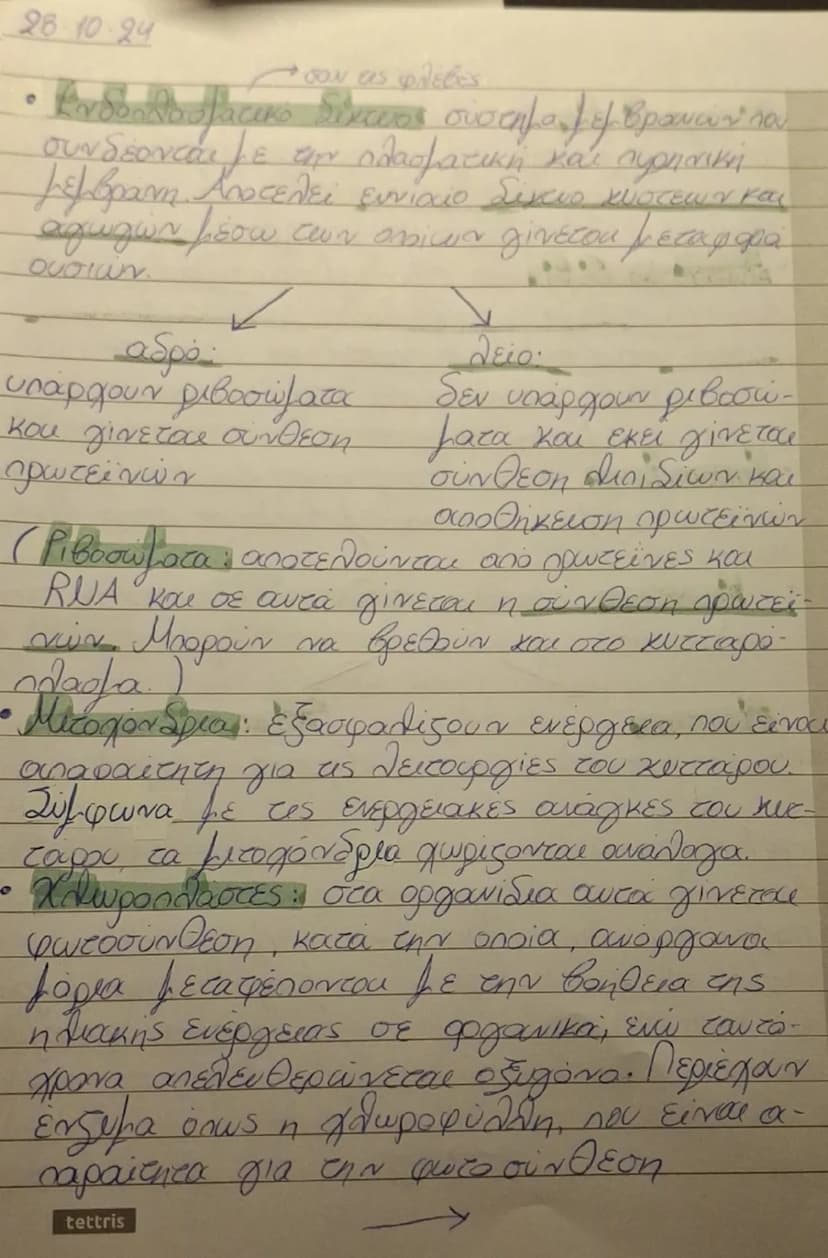 28·10·24
→ σαν τις φλέβες
• Ενδοπλασματικό δίκτυο: σύστημα μεμβρανών που
συνδέονται με την πλασματική και πυρηνική
μεμβράνη. Αποτελεί ενιαίο δίκτυο κύστεων και
αγωγών μέσω των οποίων γίνεται μεταφορά
ουσιών.
αδρό:
υπάρχουν ριβοσώματα
και γίνεται σύνθεση
πρωτεϊνών
λείο:
δεν υπάρχουν ριβοσώ-
ματα και εκεί γίνεται
σύνθεση λιπιδίων και
αποθήκευση πρωτεϊνών
(Ριβοσώματα: αποτελούνται από πρωτεΐνες και
RNA και σε αυτά γίνεται η σύνθεση πρωτεϊ-
νών. Μπορούν να βρεθούν και στο κυτταρό-
πλασμα.)
• Μιτοχόνδρια: εξασφαλίζουν ενέργεια, που είναι
απαραίτητη για τις λειτουργίες του κυττάρου.
Σύμφωνα με τις ενεργειακές ανάγκες του κυτ-
τάρου, τα μιτοχόνδρια χωρίζονται ανάλογα.
• Χλωροπλάστες: στα οργανίδια αυτά γίνεται
φωτοσύνθεση, κατά την οποία, ανόργανα
μόρια μετατρέπονται με την βοήθεια της
ηλιακής ενέργειας σε οργανικά, ενώ ταυτό-
χρονα απελευθερώνεται οξυγόνο. Περιέχουν
ένζυμα όπως η χλωροφύλλη, που είναι α-
παραίτητα για την φωτοσύνθεση
→
tettris